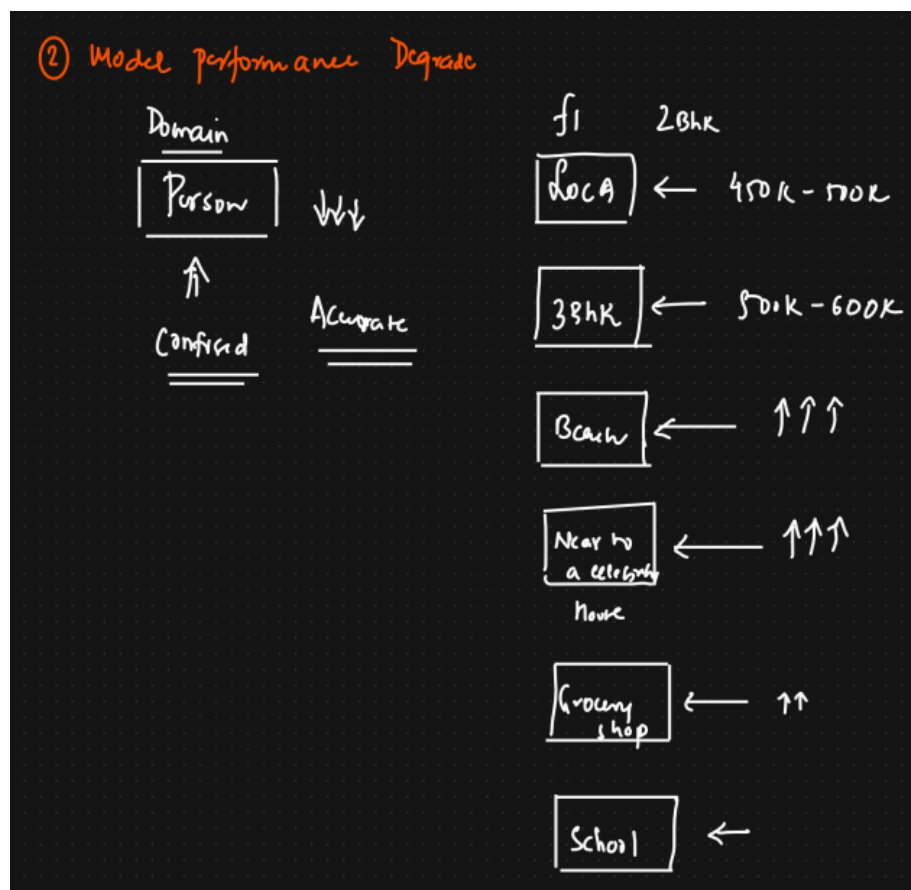 ② Model performance Degrade
Domain
Person
Confused
Accurate
f1 2BhK
Loc A ← 450K - 500K
3BhK ← 500K - 600K
Beach ← ↑↑↑
Near to
a celebrity
house
← ↑↑↑
Grocery
shop
← ↑↑
School ←